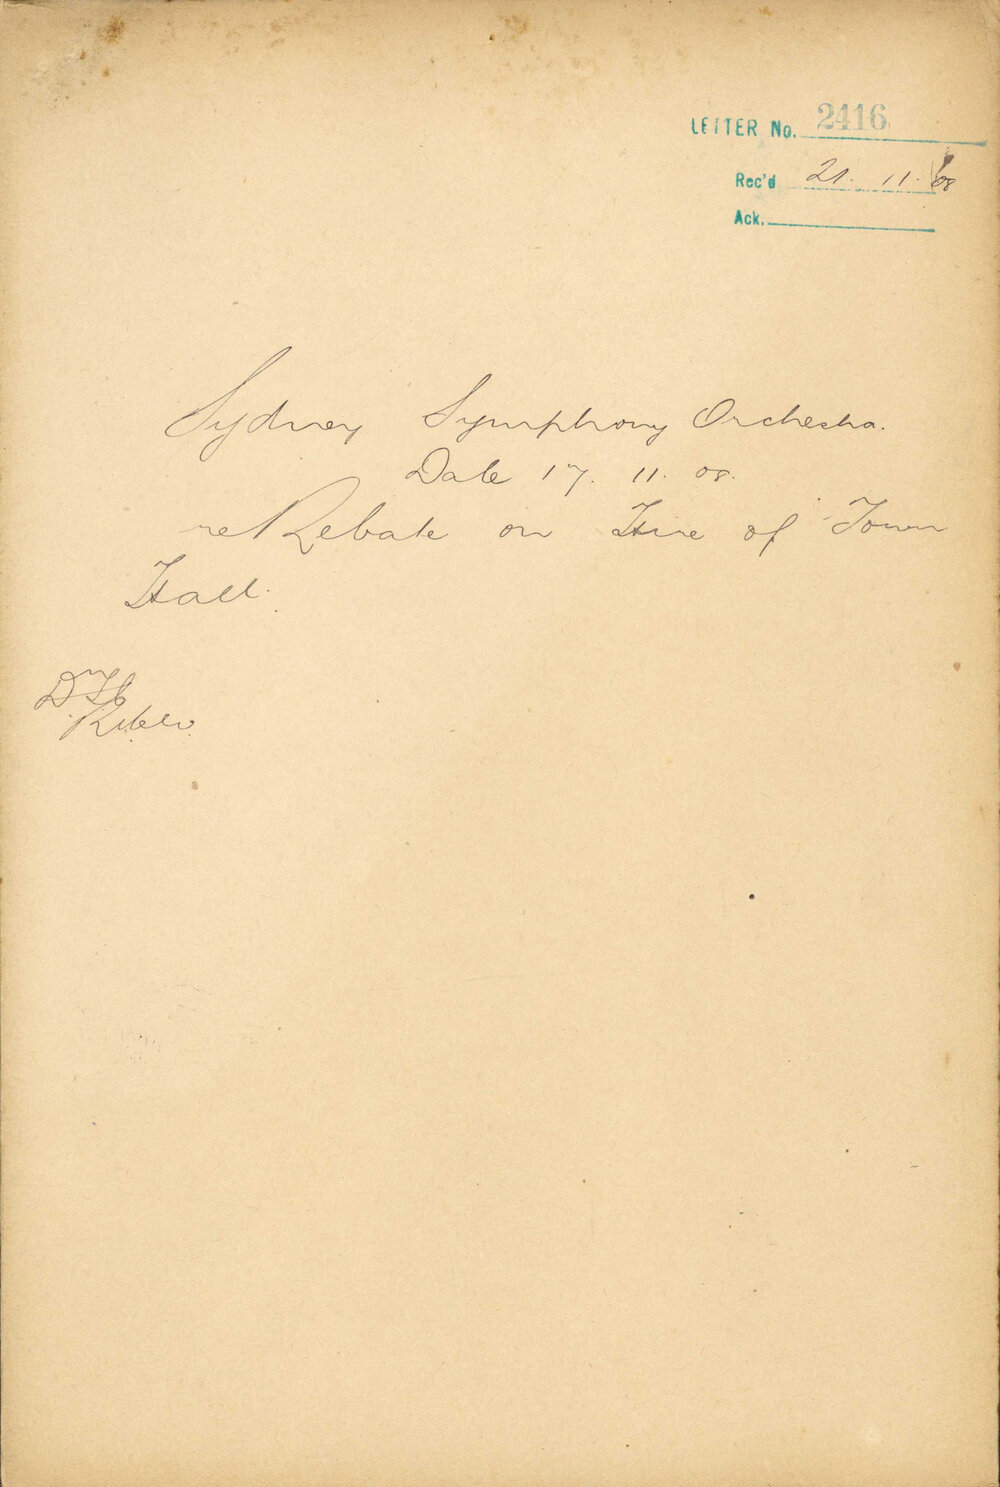 LETTER No. 2416
Rec'd 21. 11. 08
Ack.
Sydney Symphony Orchestra.
Date 17. 11. 08.
re Rebate on Hire of Town
Hall.